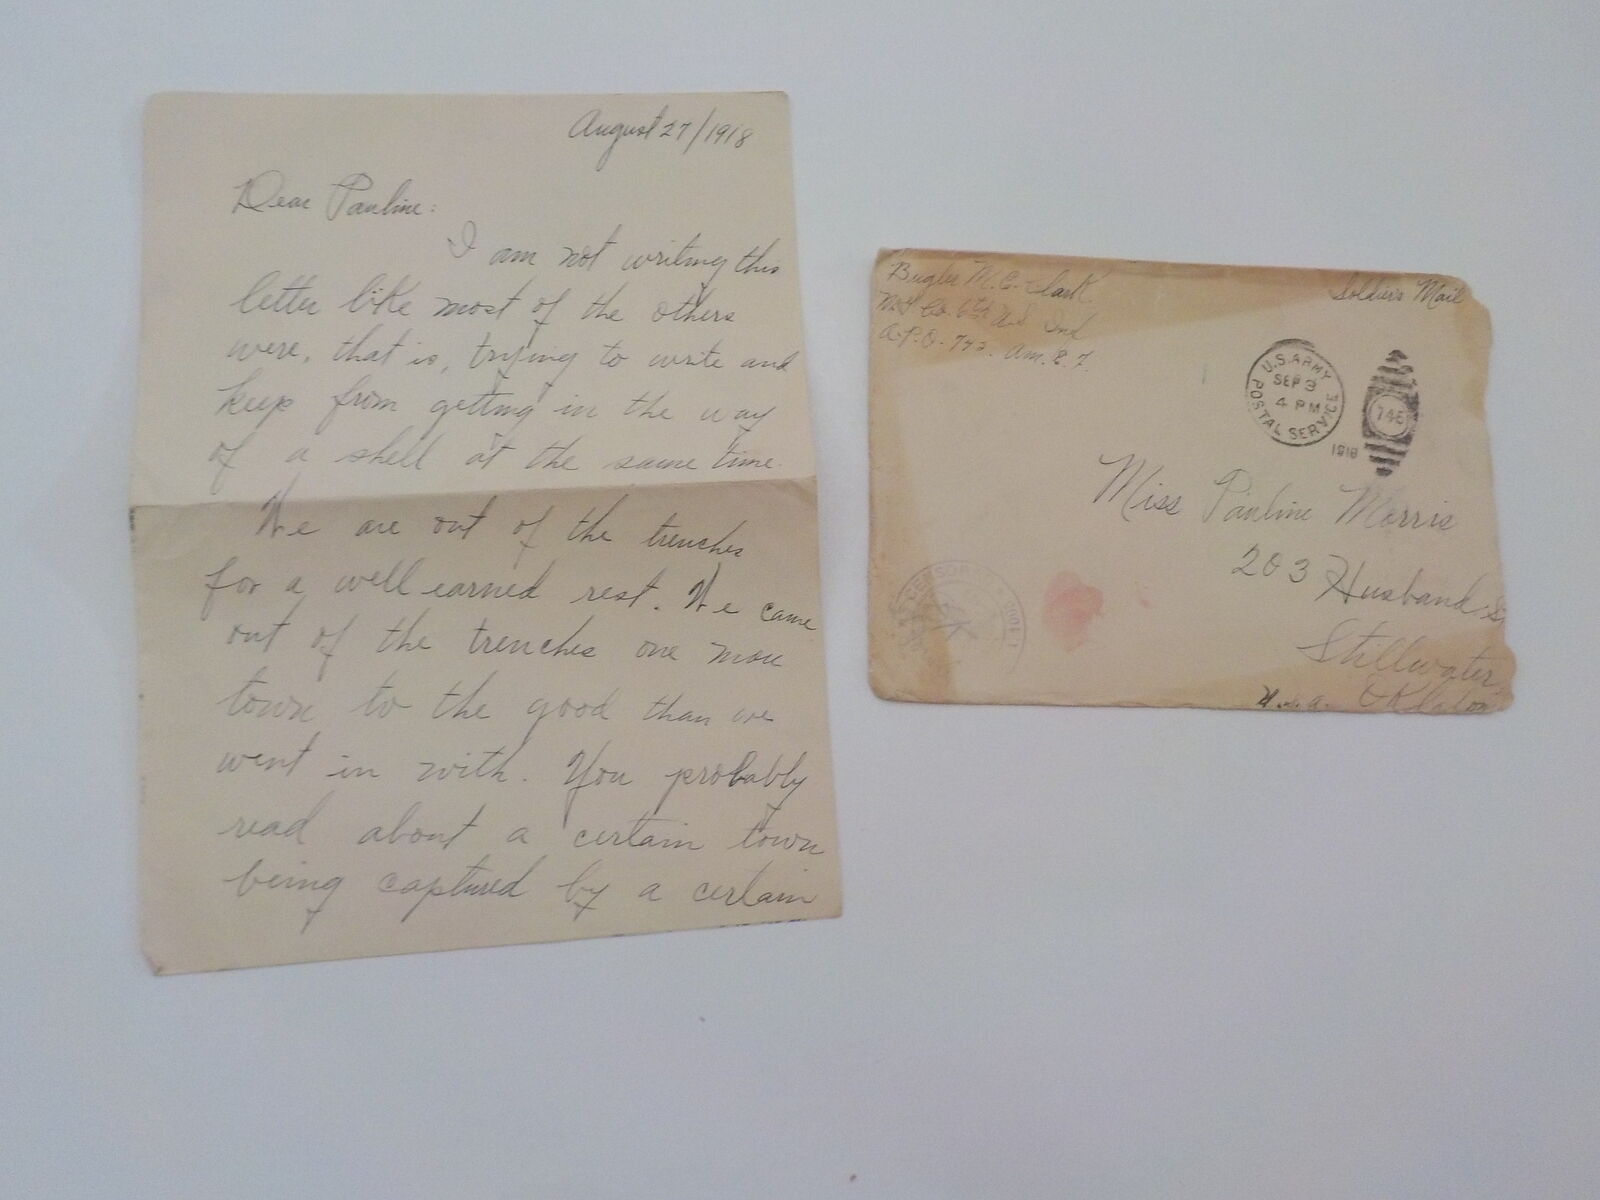 August 27/1918
Dear Pauline:
I am not writing this
letter like most of the others
were, that is, trying to write and
keep from getting in the way
of a shell at the same time.
We are out of the trenches
for a well earned rest. We came
out of the trenches one more
town to the good than we
went in with. You probably
read about a certain town
being captured by a certain
Bugler M.E. Clark.
Co. 6th U.S. Inf
A.P.O. 745. Am. E. F.
Soldier's Mail
U.S. ARMY
POSTAL SERVICE
SEP 3
4 PM
1918
745
Miss Pauline Morris
203 Husband St
Stillwater
U.S.A. Oklahom
CENSORED